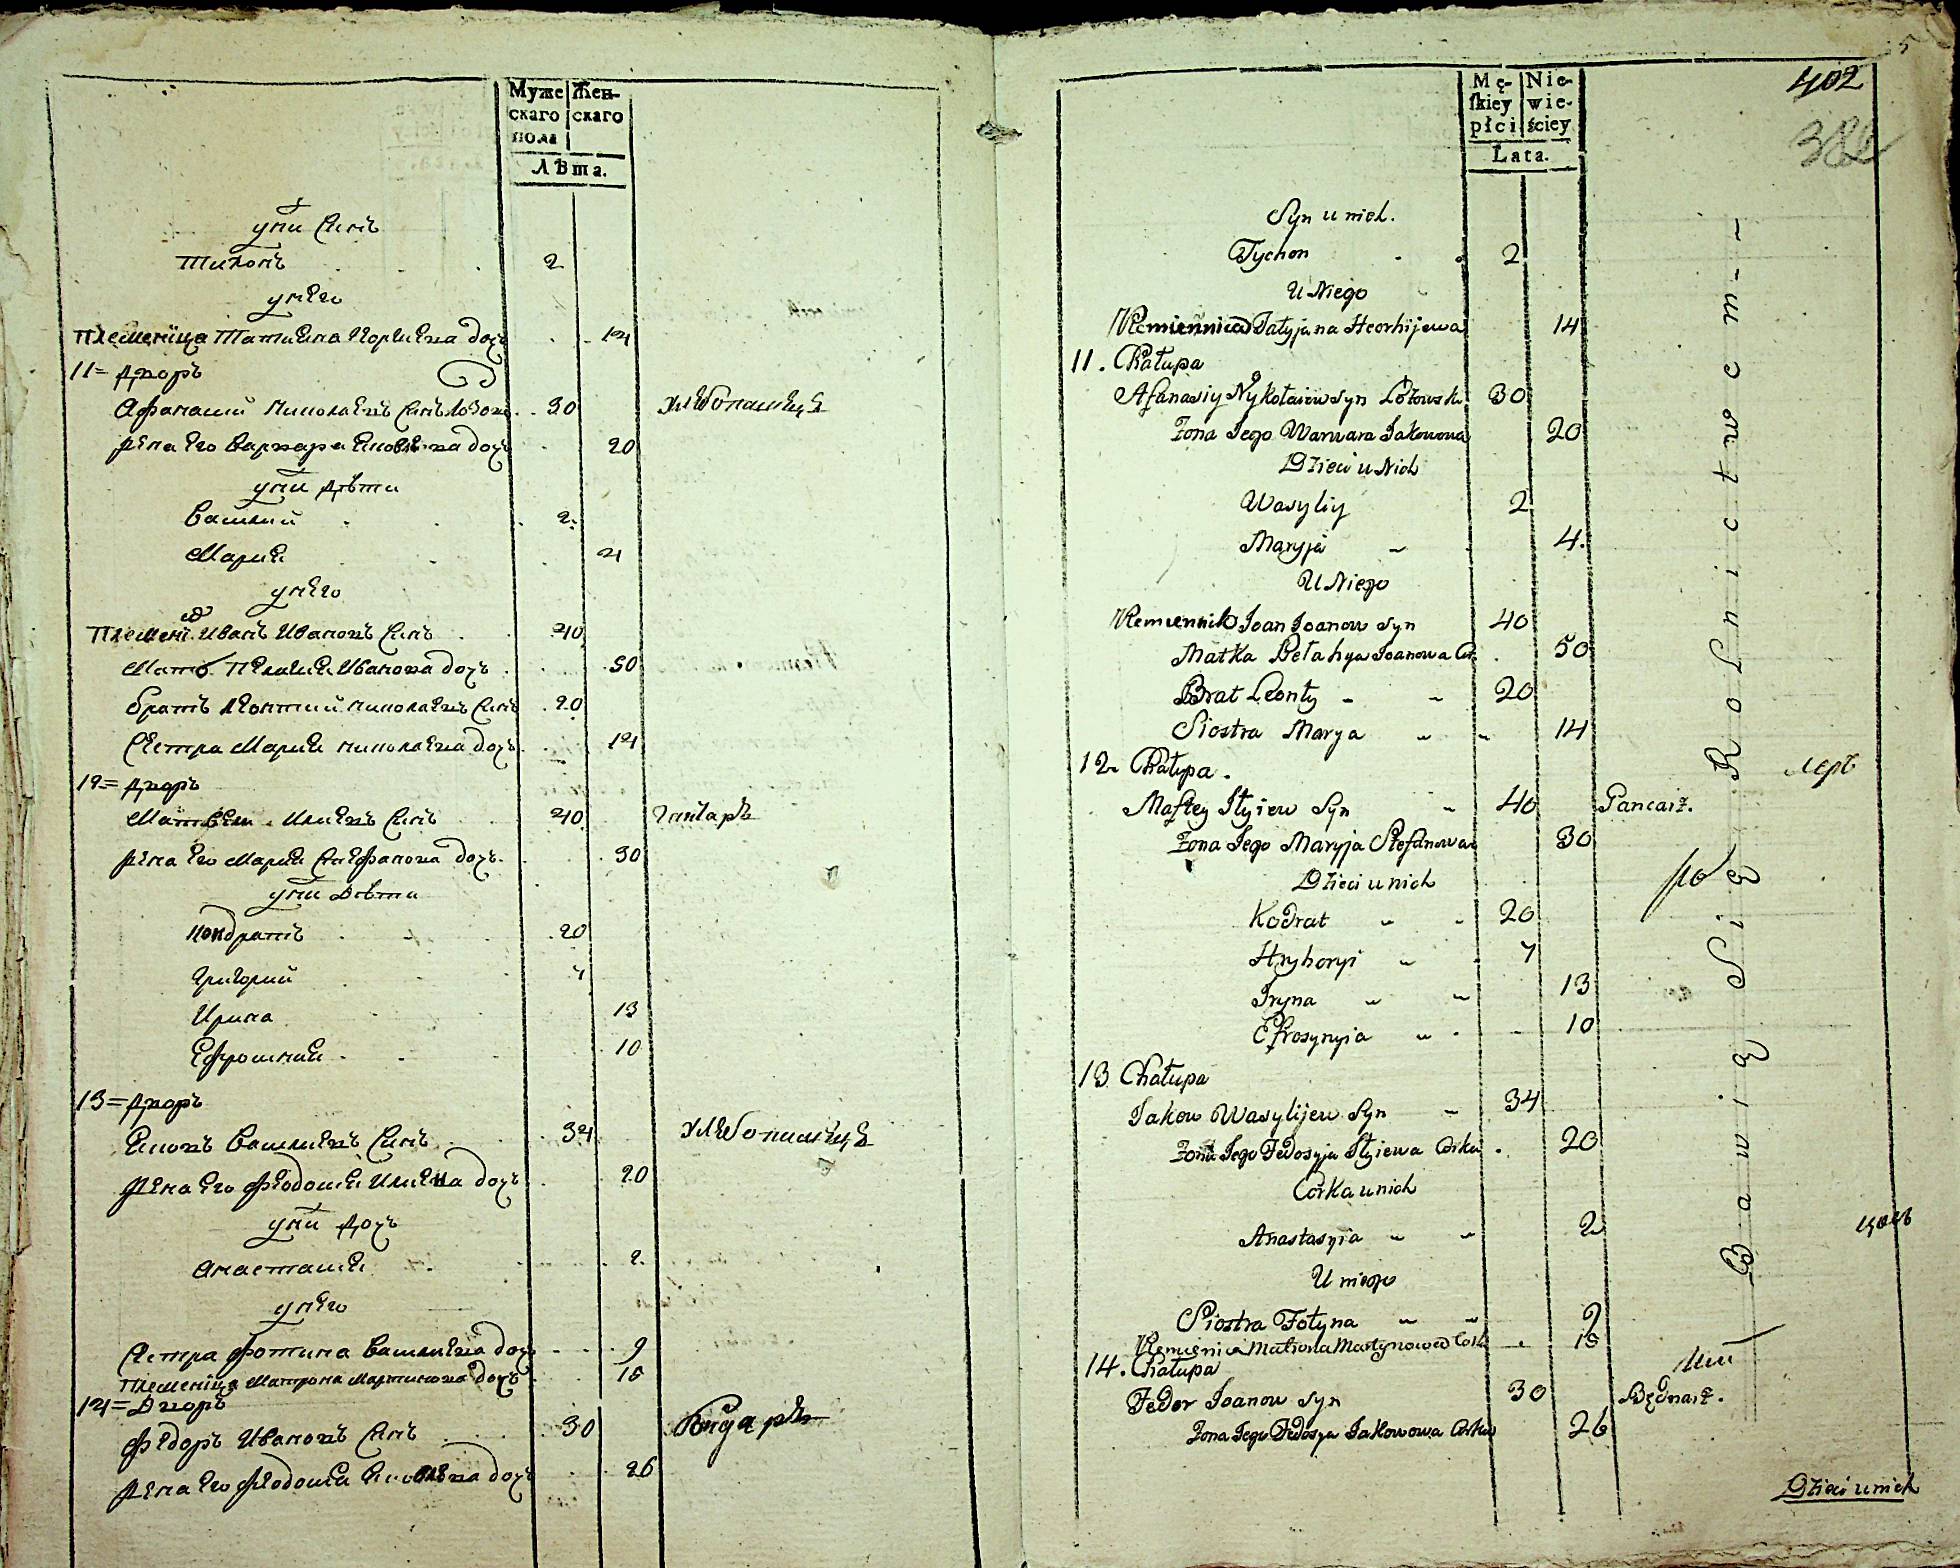 Муже Жен-
скаго скаго
пола
Лѣта.
у них Синъ
Тихонъ 2
у него
Племенница Татияна Георгиева дочь 14
11 = Дворъ
Афанасий Николаевъ Синъ 30 хлѣбопашецъ
Жена Его Варвара Яковлева дочь 20
у них Дѣти
Василий 2
Мария 4
у него
Племен. Иванъ Ивановъ Синъ 40
Мать Пелагия Иванова дочь 50
Братъ Леонтий Николаевъ Синъ 20
Сестра Мария Николаева дочь 14
12 = Дворъ
Матвей Илиевъ Синъ 40
Жена Его Мария Стефанова дочь 30
у них Дѣти
Кондратъ 20
Григорий 7
Ирина 13
Ефросиния 10
13 = Дворъ
Яковъ Василиевъ Синъ 34 хлѣбопашецъ
Жена Его Феодосия Илиева дочь 20
у них Дочь
Анастасия 2
у него
Сестра Фотина Василиева дочь 9
Племенница Матрона Мартинова дочь 15
14 = Дворъ
Фѣдоръ Ивановъ Синъ 30 Бондарь
Жена Его Феодосия Яковлева дочь 26
5
402
382
Mę- Nie-
ſkiey wie-
płci ściey
Lata.
Syn u nich.
Tychon 2
U Niego
Plemiennica Tatyjana Heorhijewa 14
11. Chałupa
Afanasiy Nykołaiew Syn 30
Żona Jego Warwara Jakowowa 20
Dzieci u Nich
Wasyliy 2
Maryja 4.
U Niego
Plemiennik Joan Joanow Syn 40
Matka Pełahya Joanowa Cór. 50
Brat Leonty 20
Siostra Marya 14
12 Chałupa.
Maftey Iłyiew Syn 40 Gancarz.
Żona Jego Maryja Stefanowa 30
Dzieci u nich
Kodrat 20
Hryhoryi 7
Iryna 13
Efrosynyia 10
13 Chałupa
Jakow Wasylijew Syn 34
Żona Jego Fedosyja Iłyiewa Córka 20
Córka u nich
Anastasyia 2
U niego
Siostra Fotyna 9
Plemienica Matrona Martynowa Córk 15
14. Chałupa
Fedor Joanow Syn 30 Bednarz.
Żona Jego Fedosya Jakowowa Córka 26
Bawią Się Rolnictwem
Dzieci u nich